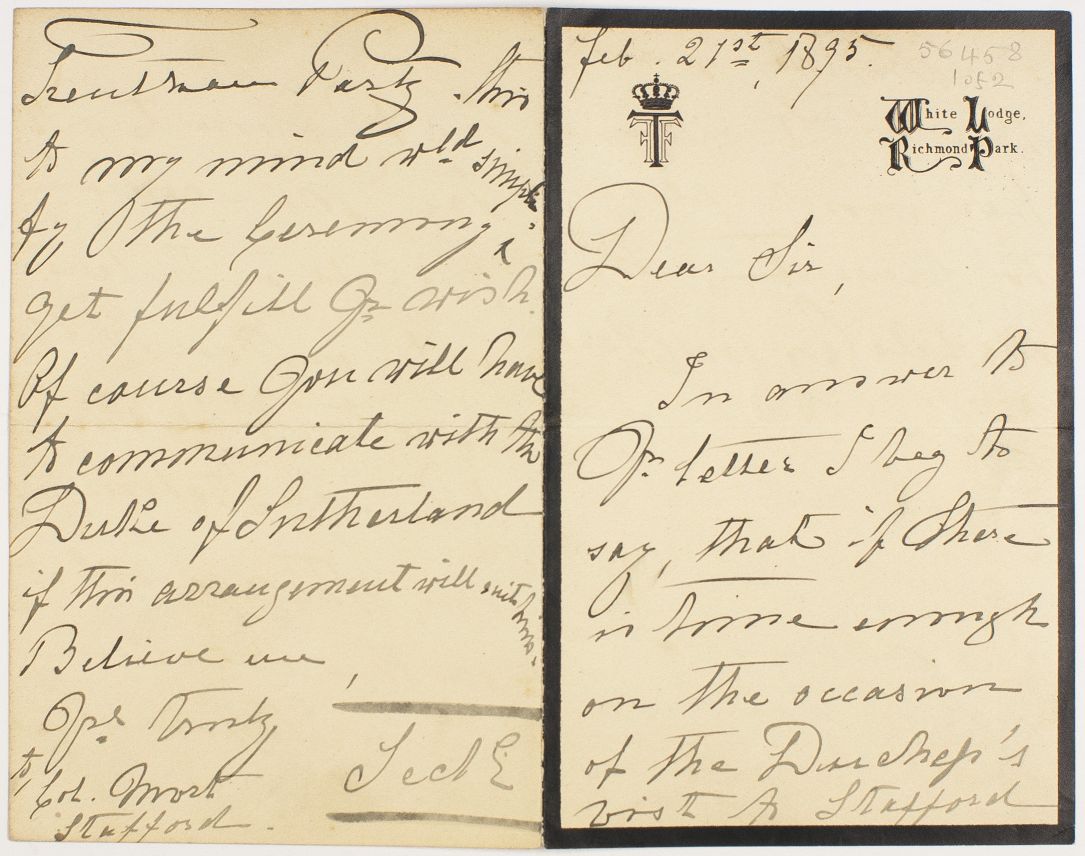 Feb. 21st, 1895.
56458
1 of 2
White Lodge,
Richmond Park.
Dear Sir,
In answer to
Yr letter I beg to
say, that if there
is time enough
on the occasion
of the Duchess's
visit to Stafford
Trentham Party. this
to my mind wld simpli-
fy the Ceremony &
yet fulfill Yr wish.
Of course You will have
to communicate with the
Duke of Sutherland
if this arrangement will suit him.
Believe me,
Yrs Trnly
Teck
to,
Col. Mort
Stafford.